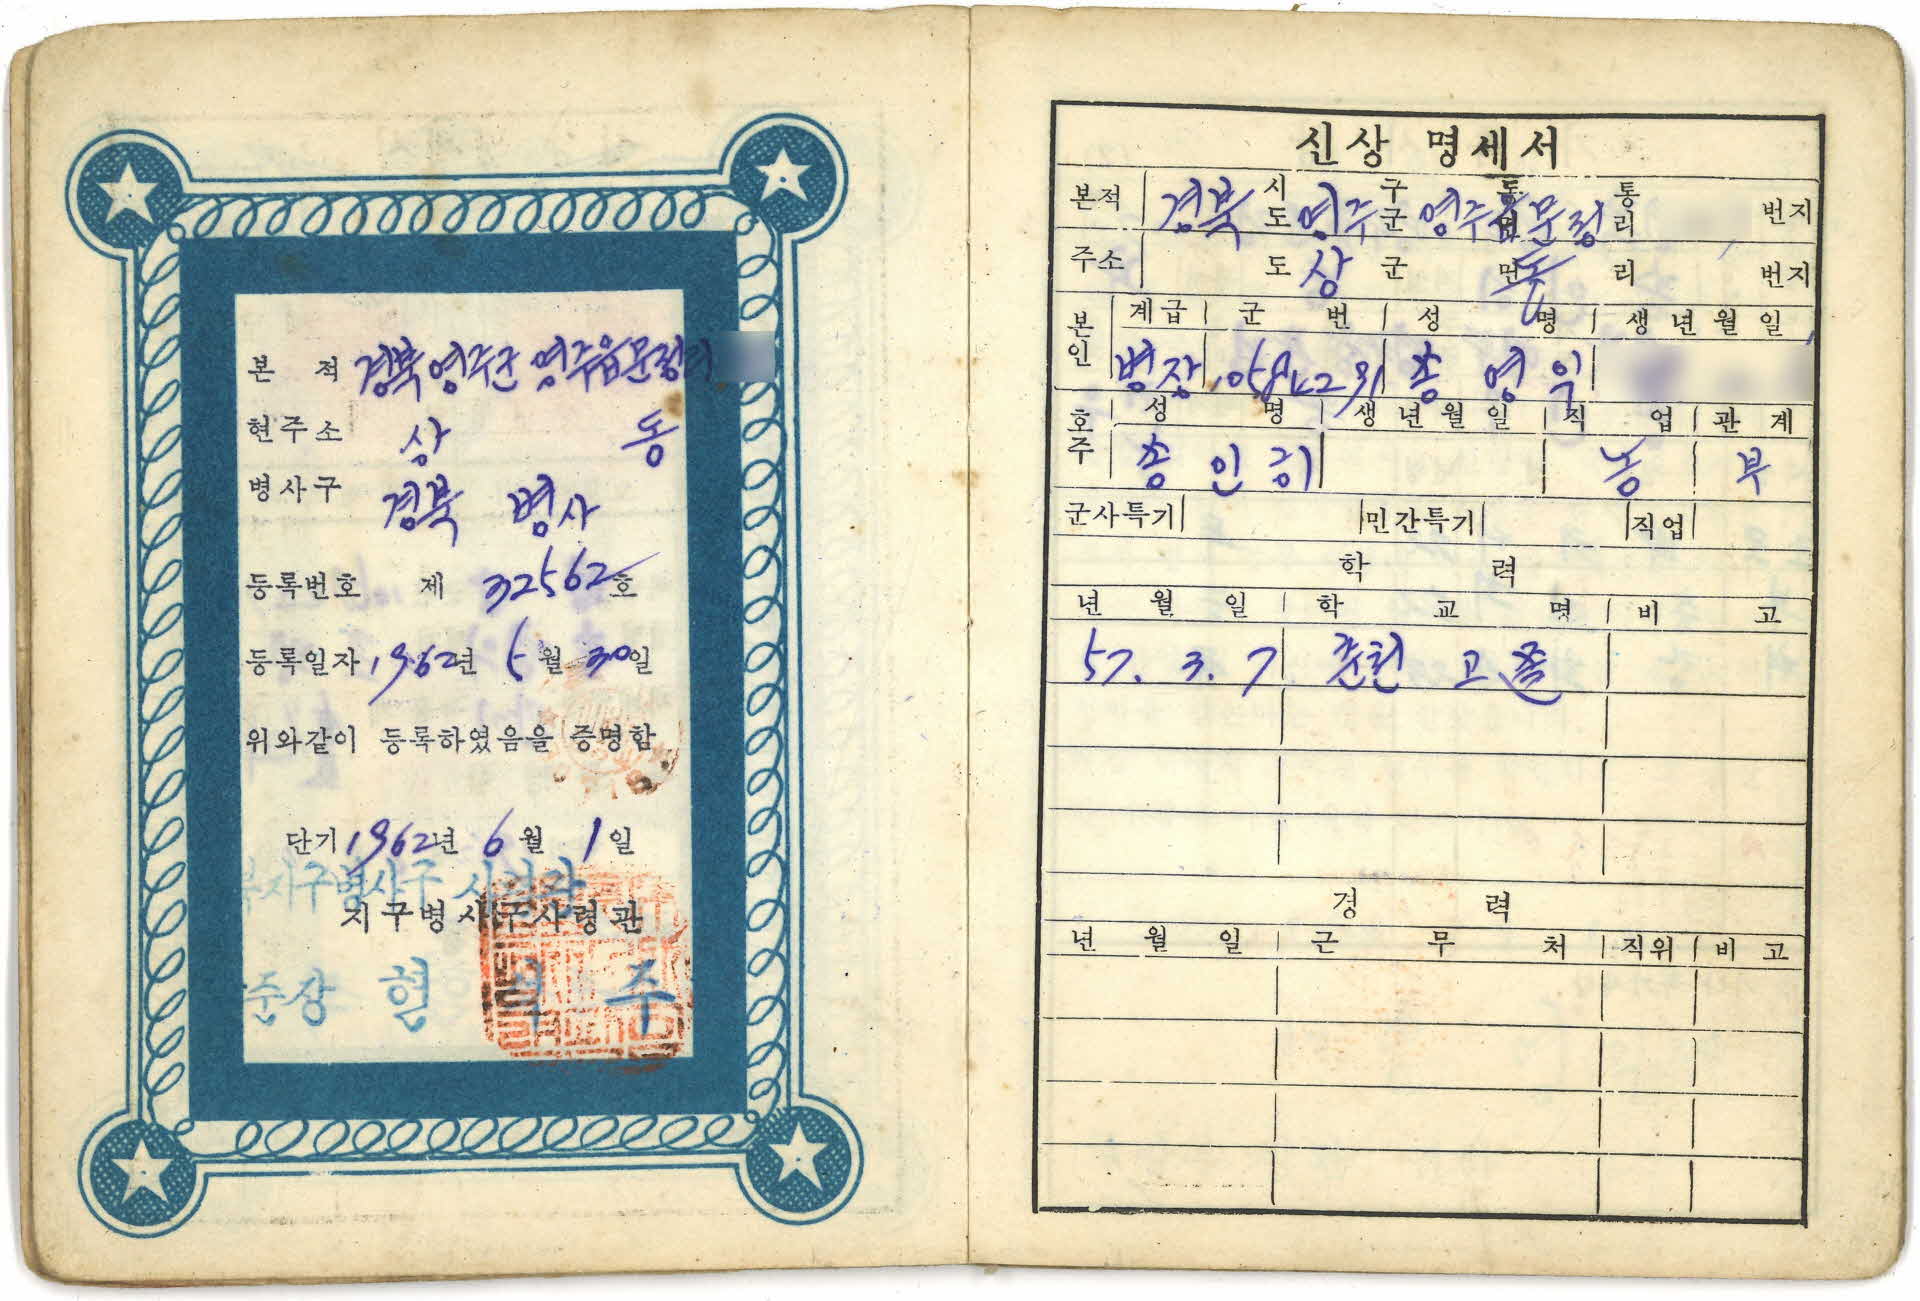 본 적 경북 영주군 영주읍 문정리
현주소 상 동
병사구 경북 병사
등록번호 제 32562 호
등록일자 1962년 5월 30일
위와같이 등록하였음을 증명함
단기 1962년 6월 1일
지구병사구사령관
준장 현 주
신상 명세서
본적 경북 시도 영주 구군 영주읍 동면 문정 통리 번지
주소 도 상 군 면 동 리 번지
본인 계급 군 번 성 명 생년월일
병장 영
호주 성 명 생년월일 직 업 관 계
인 농 부
군사특기 민간특기 직업
학 력
년 월 일 학 교 명 비 고
57. 3. 7 춘천 고졸
경 력
년 월 일 근 무 처 직위 비 고